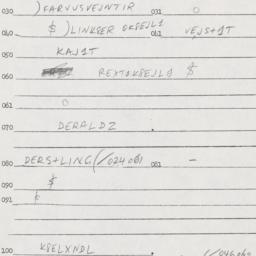 030 )FARVUSVEJNTIR 031 0
040 $ )LINKSER OKSEJL1 041 VEJS+1T
050 KAJ1T
060 REXT1KSEJL1 $
061 0
070 DERALDZ .
080 DERS+LING(/024081 081 -
090 $
091 $
100 KSELXNDL .